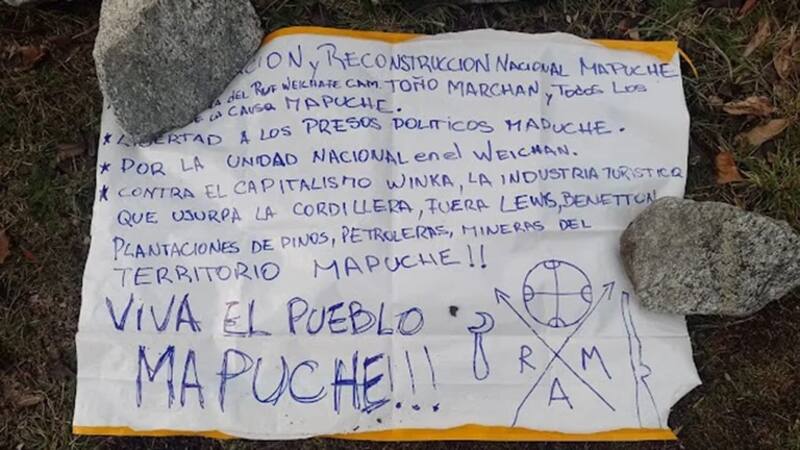 CION y RECONSTRUCCION NACIONAL MAPUCHE
DEL WEICHAFE CAM TOÑO MARCHAN, y TODOS LOS
CAUSA MAPUCHE.
* LIBERTAD A LOS PRESOS POLITICOS MAPUCHE.
* POR LA UNIDAD NACIONAL en el WEICHAN.
* CONTRA EL CAPITALISMO WINKA, LA INDUSTRIA TURISTICA
QUE USURPA LA CORDILLERA, FUERA LEWS, BENETTON,
PLANTACIONES DE PINOS, PETROLERAS, MINERAS DEL
TERRITORIO MAPUCHE!!
VIVA EL PUEBLO
MAPUCHE!!!
R A M